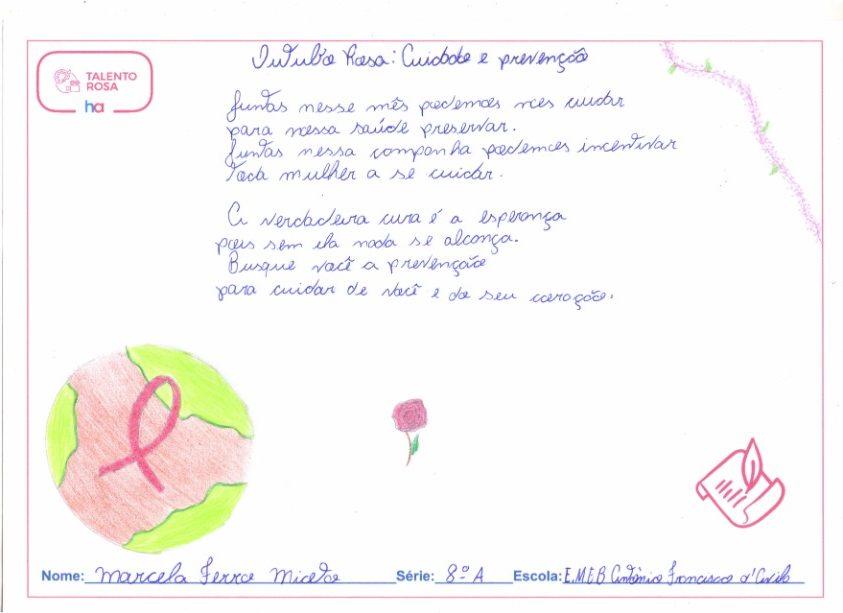 TALENTO
ROSA
ha
Outubro Rosa: Cuidado e prevenção
Juntas nesse mês podemos nos cuidar
para nossa saúde preservar.
Juntas nessa companha podemos incentivar
toda mulher a se cuidar.
A verdadeira cura é a esperança
pois sem ela nada se alcança.
Busque você a prevenção
para cuidar de você e do seu coração.
Nome: Marcela Ferra Série: 8º A Escola: E.M.E.B Antônio Francisco d'Ávila